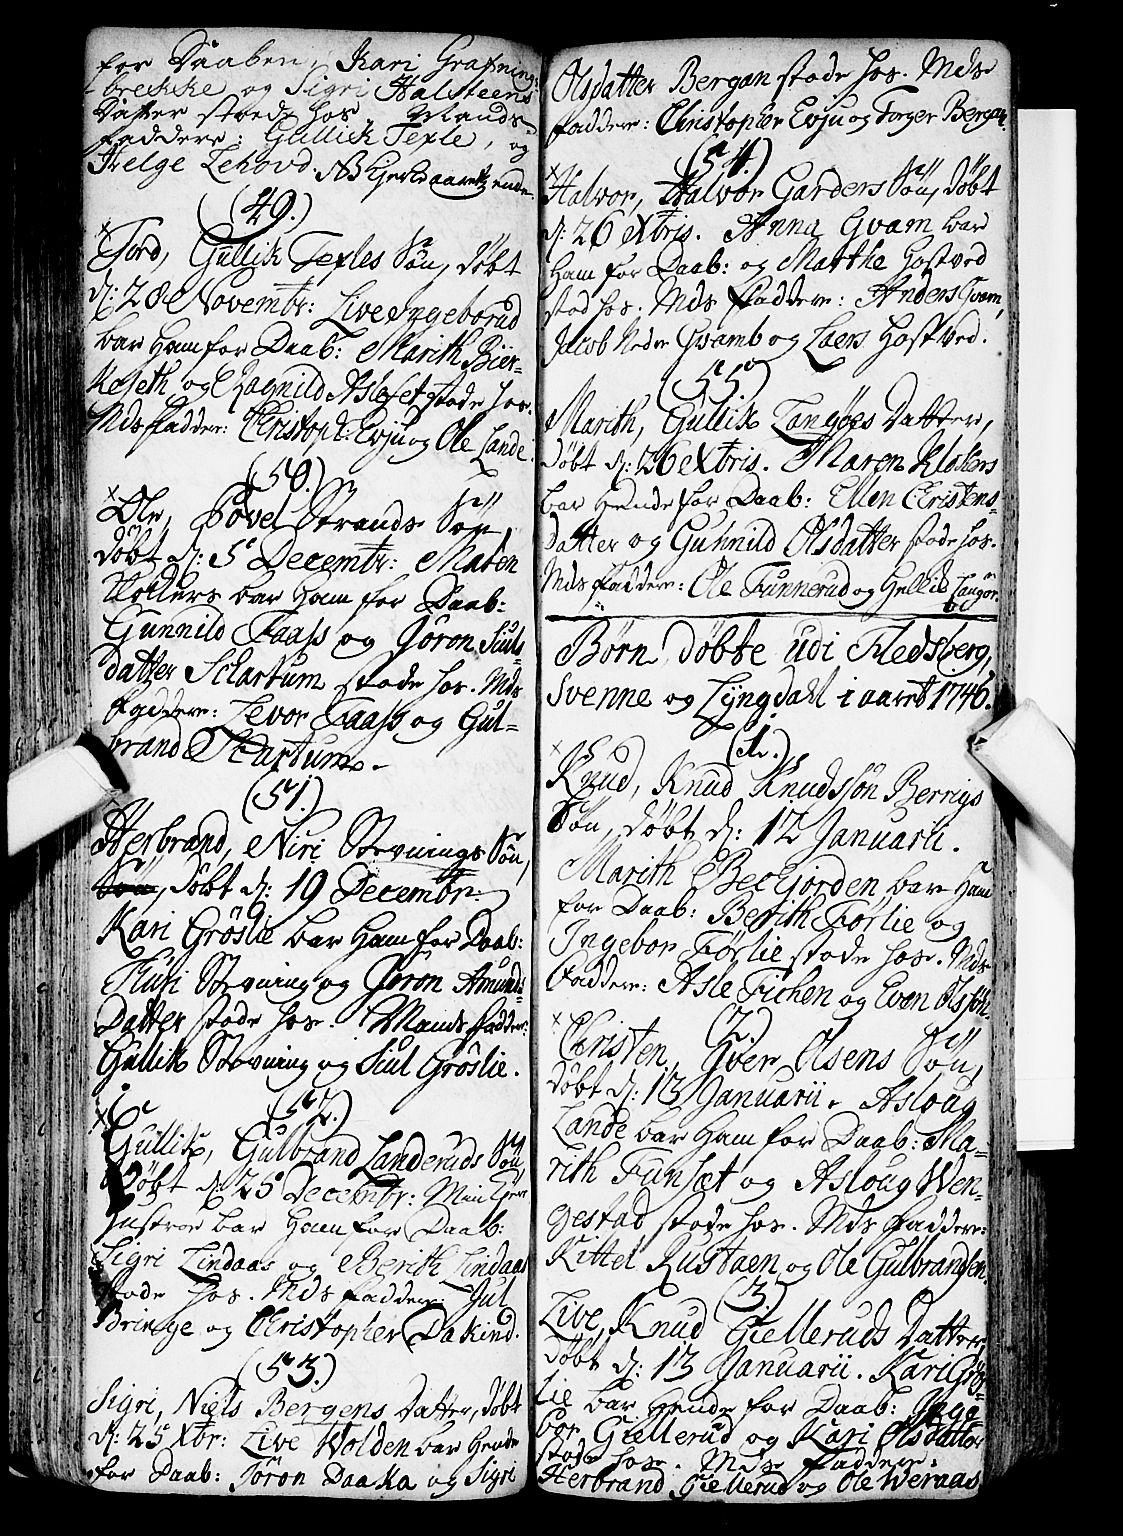 for Daaben, Kari Grafning-
brekke og Sigri Halsteens
Datter stode hos, Mands-
faddere: Gullick Texle, og
Helge Lehovd. NB Kirke aarets ende
(49.)
Tord, Gullik Texles Sön, döbt
d: 28de Novembr: Live Ingeborud
bar Ham for Daab: Marith Bier-
keseth og Ragnild Asleset stode hos.
Mds faddere: Christoph: Evju og Ole Lande.
(50.)
Ole, Povel Strands Sön,
döbt d: 5te Decembr: Maren
Kolkers bar Ham for Daab:
Gunnild Faass og Jöron Siuls-
datter Schartum stode hos. Mds
faddere: Levor Faass og Gul-
brand Skartum.
(51.)
Herbrand, Niri Stevnings Sön,
döbt d: 19 Decembr:
Kari Gröslie bar Ham for Daab:
Thuri Stevning og Jöron Amunds-
Datter stode hos. Mands faddere:
Gullik Stevning og Siul Gröslie.
(52.)
Gullik, Gulbrand Landeruds Sön,
Döbt d: 25 Decembr: Min
Hustroe bar Ham for Daab:
Sigri Lindaas og Berith Lindaas
stode hos. Mds faddere: Jul
Bringe og Christopher Dakind.
(53.)
Sigri, Niels Bergens Datter, döbt
d: 25 Xbr: Live Wolden bar Hende
for Daab: Jöron Daaka og Sigri
Olsdatter Bergan stode hos. Mds
faddere: Christopher Evju og Torger Bergan.
(54.)
Halvor, Halvor Garders Sön, döbt
d: 26 Xbris. Anna Gvam bar
Ham for Daab: og Marthe Hostved
stod hos. Mds faddere: Anders Gvam,
Jacob Neder Gvamb og Laers Hostved.
(55)
Marith, Gullik Langöes Datter,
döbt d: 26 Xbris. Maren Klokers
bar Hende for Daab: Ellen Christens-
datter og Guhnild Olsdatter stode hos.
Mds faddere: Ole Funnerud og Hellik Langöe.
Börn döbte udi Fledsberg,
Svenne og Lyngdahl i aaret 1746.
(1.)
Knud, Knud Knudssön Berrigs
Sön, döbt d: 12 Januarii.
Marith Becgjorden bar Ham
for Daab: Berith Förlie og
Ingebor Förlie stode hos. Mds
faddere: Asle Fichen og Even Olssön.
(2)
Christen, Iver Olsens Sön,
döbt d: 13 Januarii. Asloug
Lande bar Ham for Daab: Ma-
rith Funset og Asloug Wen-
gestad stode hos. Mds faddere:
Kittel Rustaen og Ole Gulbrandsen.
(3)
Live, Knud Gielleruds Datter,
döbt d: 13 Januarii. Kari Grös-
lie bar Hende for Daab: Inge-
bor Giellerud og Kari Olsdatter
stode hos. Mds faddere:
Herbrand Giellerud og Ole Weraas